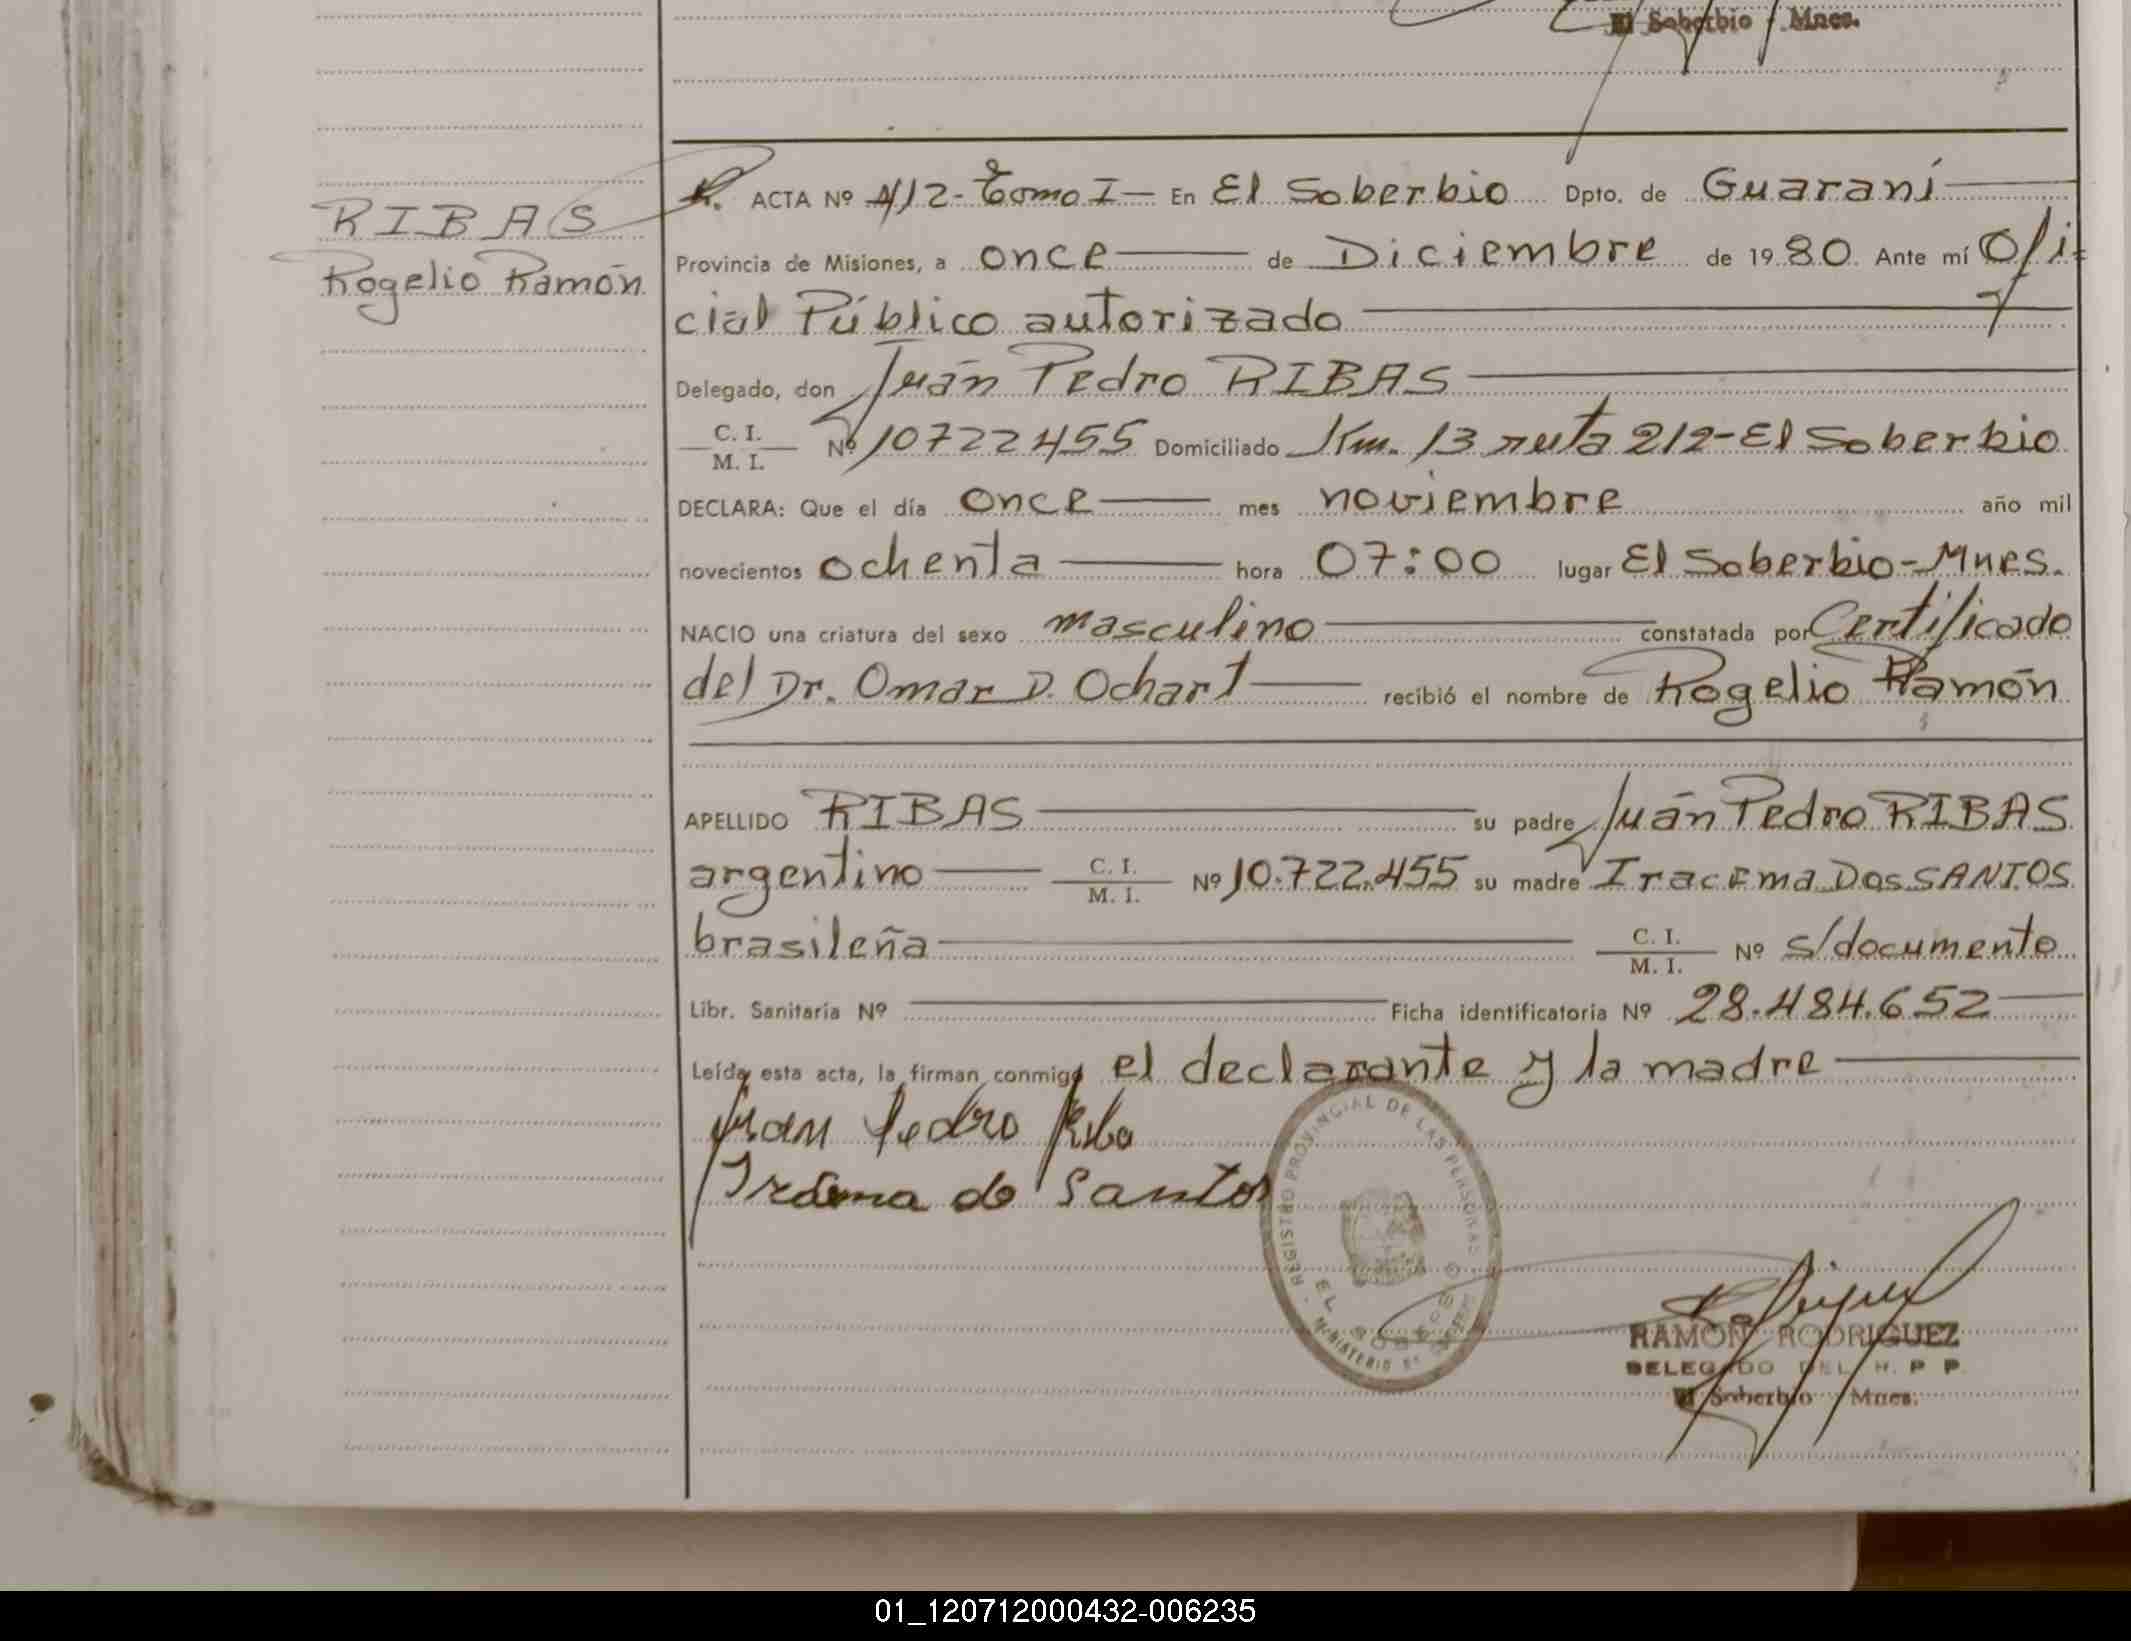 El Soberbio - Mnes.
RIBAS
Rogelio Ramón
ACTA Nº 412- Tomo I- En El Soberbio Dpto. de Guaraní
Provincia de Misiones, a once de Diciembre de 1980. Ante mí Ofi-
cial Público autorizado
Delegado, don Juán Pedro RIBAS
C. I.
M. I. Nº 10722455 Domiciliado Km. 13 ruta 212-El Soberbio
DECLARA: Que el día once mes noviembre año mil
novecientos ochenta hora 07:00 lugar El Soberbio-Mnes.
NACIO una criatura del sexo masculino constatada por Certificado
del Dr. Omar D. Ochart recibió el nombre de Rogelio Ramón
APELLIDO RIBAS su padre Juán Pedro RIBAS
argentino C. I. M. I. Nº 10.722.455 su madre Iracema Dos SANTOS
brasileña C. I. M. I. Nº s/documento
Libr. Sanitaria Nº Ficha identificatoria Nº 28.484.652
Leída esta acta, la firman conmigo el declarante y la madre
Juan Pedro Riba
do Santos
REGISTRO PROVINCIAL DE LAS PERSONAS
EL SOBERBIO
MINISTERIO DE GOBIERNO
RAMON RODRIGUEZ
DELEGADO DEL R. P. P.
El Soberbio - Mnes.
01_120712000432-006235